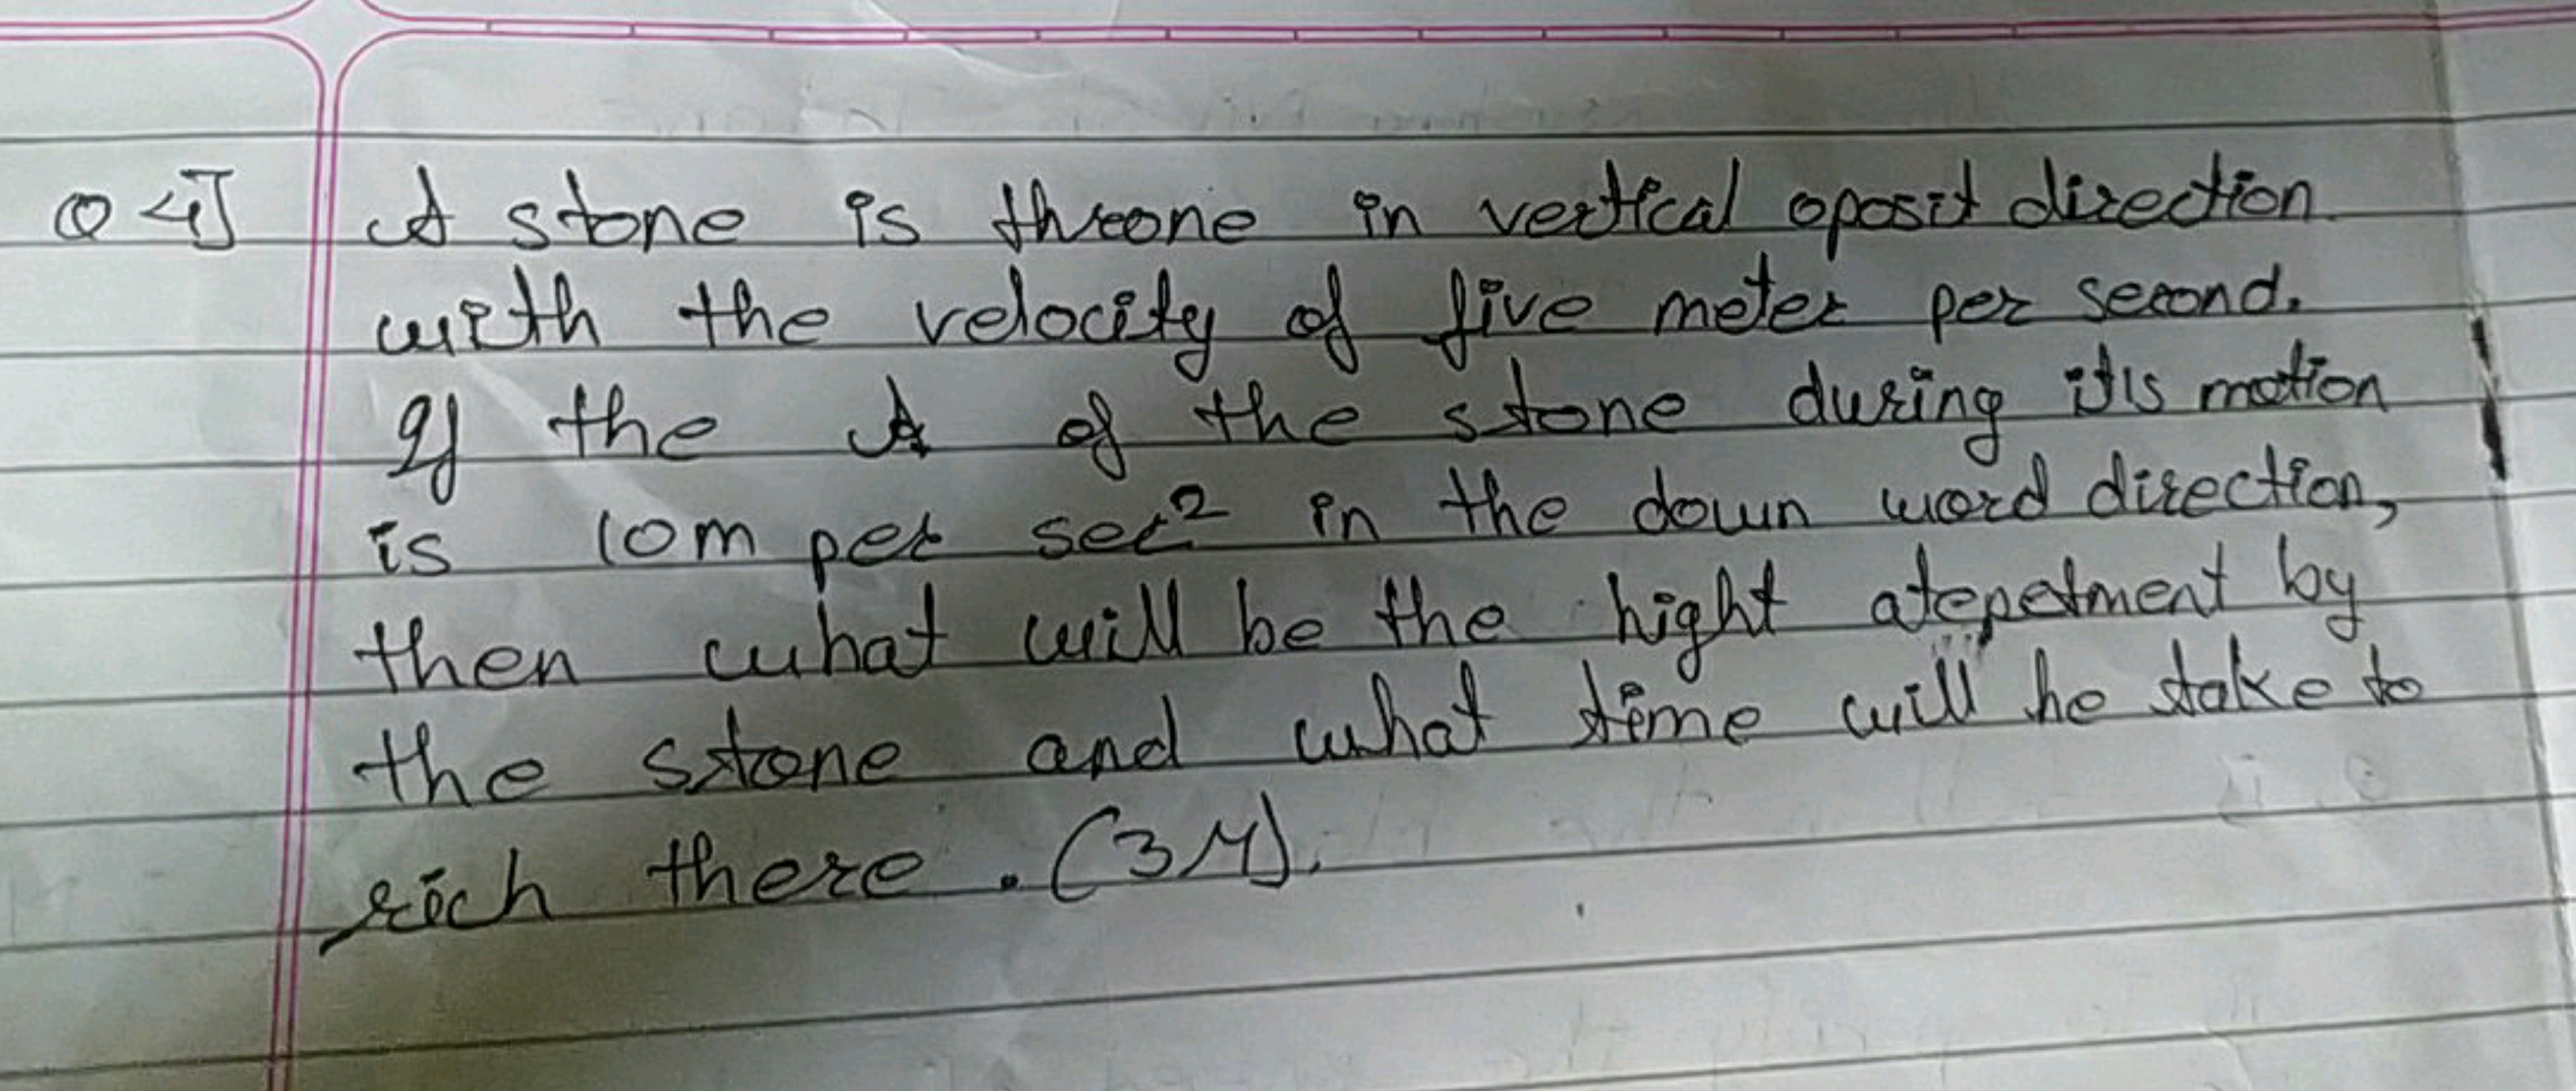 Q 4] A stone is threone in vertical oposit direction
with the velocity of five meter per second.
If the A of the stone during it's motion
is 10m per sec² in the down word direction,
then what will be the hight atepetment by
the stone and what time will he take to
rich there. (3M).